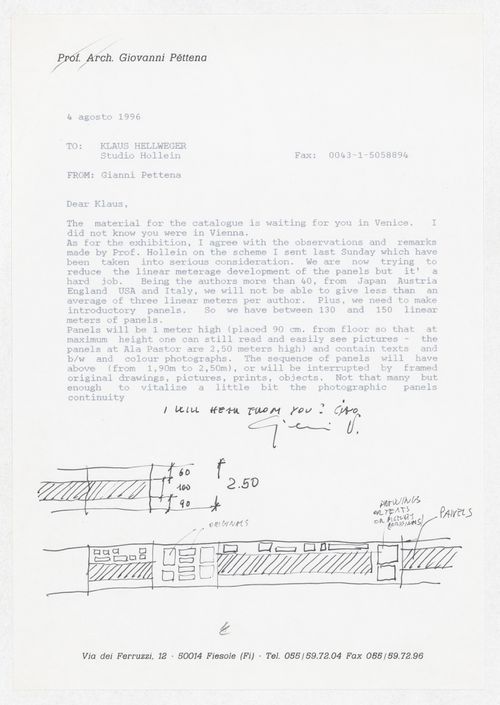 Prof. Arch. Giovanni Pèttena
4 agosto 1996
TO: KLAUS HELLWEGER
Studio Hollein Fax: 0043-1-5058894
FROM: Gianni Pettena
Dear Klaus,
The material for the catalogue is waiting for you in Venice. I
did not know you were in Vienna.
As for the exhibition, I agree with the observations and remarks
made by Prof. Hollein on the scheme I sent last Sunday which have
been taken into serious consideration. We are now trying to
reduce the linear meterage development of the panels but it' a
hard job. Being the authors more than 40, from Japan Austria
England USA and Italy, we will not be able to give less than an
average of three linear meters per author. Plus, we need to make
introductory panels. So we have between 130 and 150 linear
meters of panels.
Panels will be 1 meter high (placed 90 cm. from floor so that at
maximum height one can still read and easily see pictures - the
panels at Ala Pastor are 2,50 meters high) and contain texts and
b/w and colour photographs. The sequence of panels will have
above (from 1,90m to 2,50m), or will be interrupted by framed
original drawings, pictures, prints, objects. Not that many but
enough to vitalize a little bit the photographic panels
continuity
I WILL HEAR FROM YOU? CIAO,
60
100
90
2.50
ORIGINALS
DRAWINGS
OR TEXTS
OR PICTURES
(ORIGINALS)
PANELS
Via dei Ferruzzi, 12 - 50014 Fiesole (Fi) - Tel. 055/59.72.04 Fax 055/59.72.96